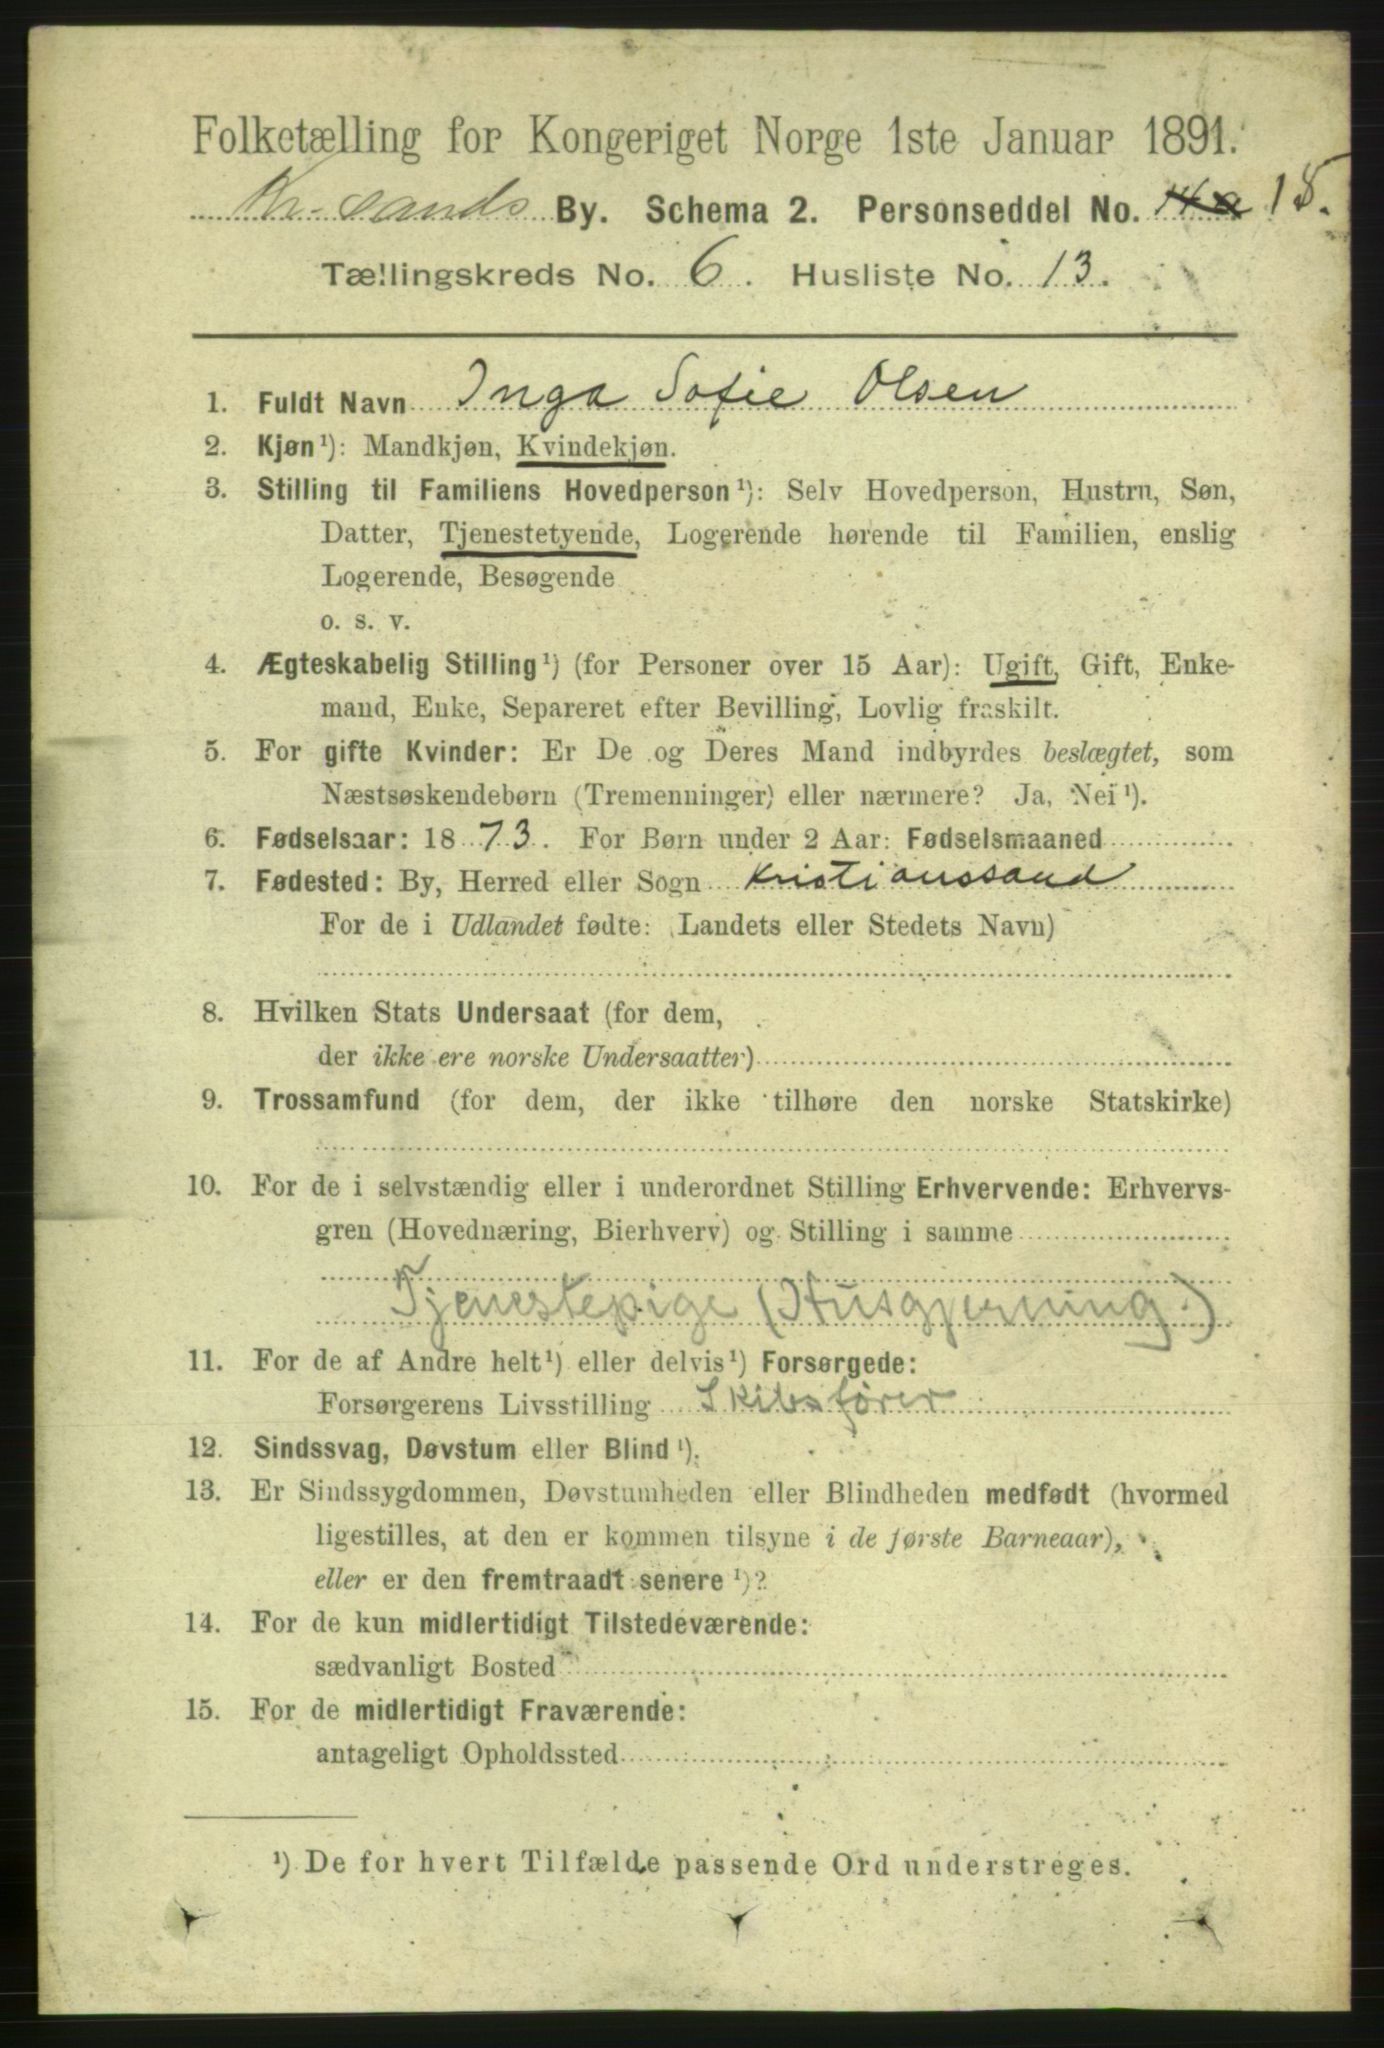 Folketælling for Kongeriget Norge 1ste Januar 1891.
Kr-sands By. Schema 2. Personseddel No. 15.
Tællingskreds No. 6. Husliste No. 13.
1. Fuldt Navn Inga Sofie Olsen
2. Kjøn¹): Mandkjøn, Kvindekjøn.
3. Stilling til Familiens Hovedperson¹): Selv Hovedperson, Hustru, Søn,
Datter, Tjenestetyende, Logerende hørende til Familien, enslig
Logerende, Besøgende
o. s. v.
4. Ægteskabelig Stilling¹) (for Personer over 15 Aar): Ugift, Gift, Enke-
mand, Enke, Separeret efter Bevilling, Lovlig fraskilt.
5. For gifte Kvinder: Er De og Deres Mand indbyrdes beslægtet, som
Næstsøskendebørn (Tremenninger) eller nærmere? Ja, Nei¹).
6. Fødselsaar: 1873. For Børn under 2 Aar: Fødselsmaaned
7. Fødested: By, Herred eller Sogn Kristianssand
For de i Udlandet fødte: Landets eller Stedets Navn)
8. Hvilken Stats Undersaat (for dem,
der ikke ere norske Undersaatter)
9. Trossamfund (for dem, der ikke tilhøre den norske Statskirke)
10. For de i selvstændig eller i underordnet Stilling Erhvervende: Erhvervs-
gren (Hovednæring, Bierhverv) og Stilling i samme
Tjenestepige (Husgjerning.)
11. For de af Andre helt¹) eller delvis¹) Forsørgede:
Forsørgerens Livsstilling Skibsfører
12. Sindssvag, Døvstum eller Blind¹).
13. Er Sindssygdommen, Døvstumheden eller Blindheden medfødt (hvormed
ligestilles, at den er kommen tilsyne i de første Barneaar),
eller er den fremtraadt senere¹)?
14. For de kun midlertidigt Tilstedeværende:
sædvanligt Bosted
15. For de midlertidigt Fraværende:
antageligt Opholdssted
¹) De for hvert Tilfælde passende Ord understreges.